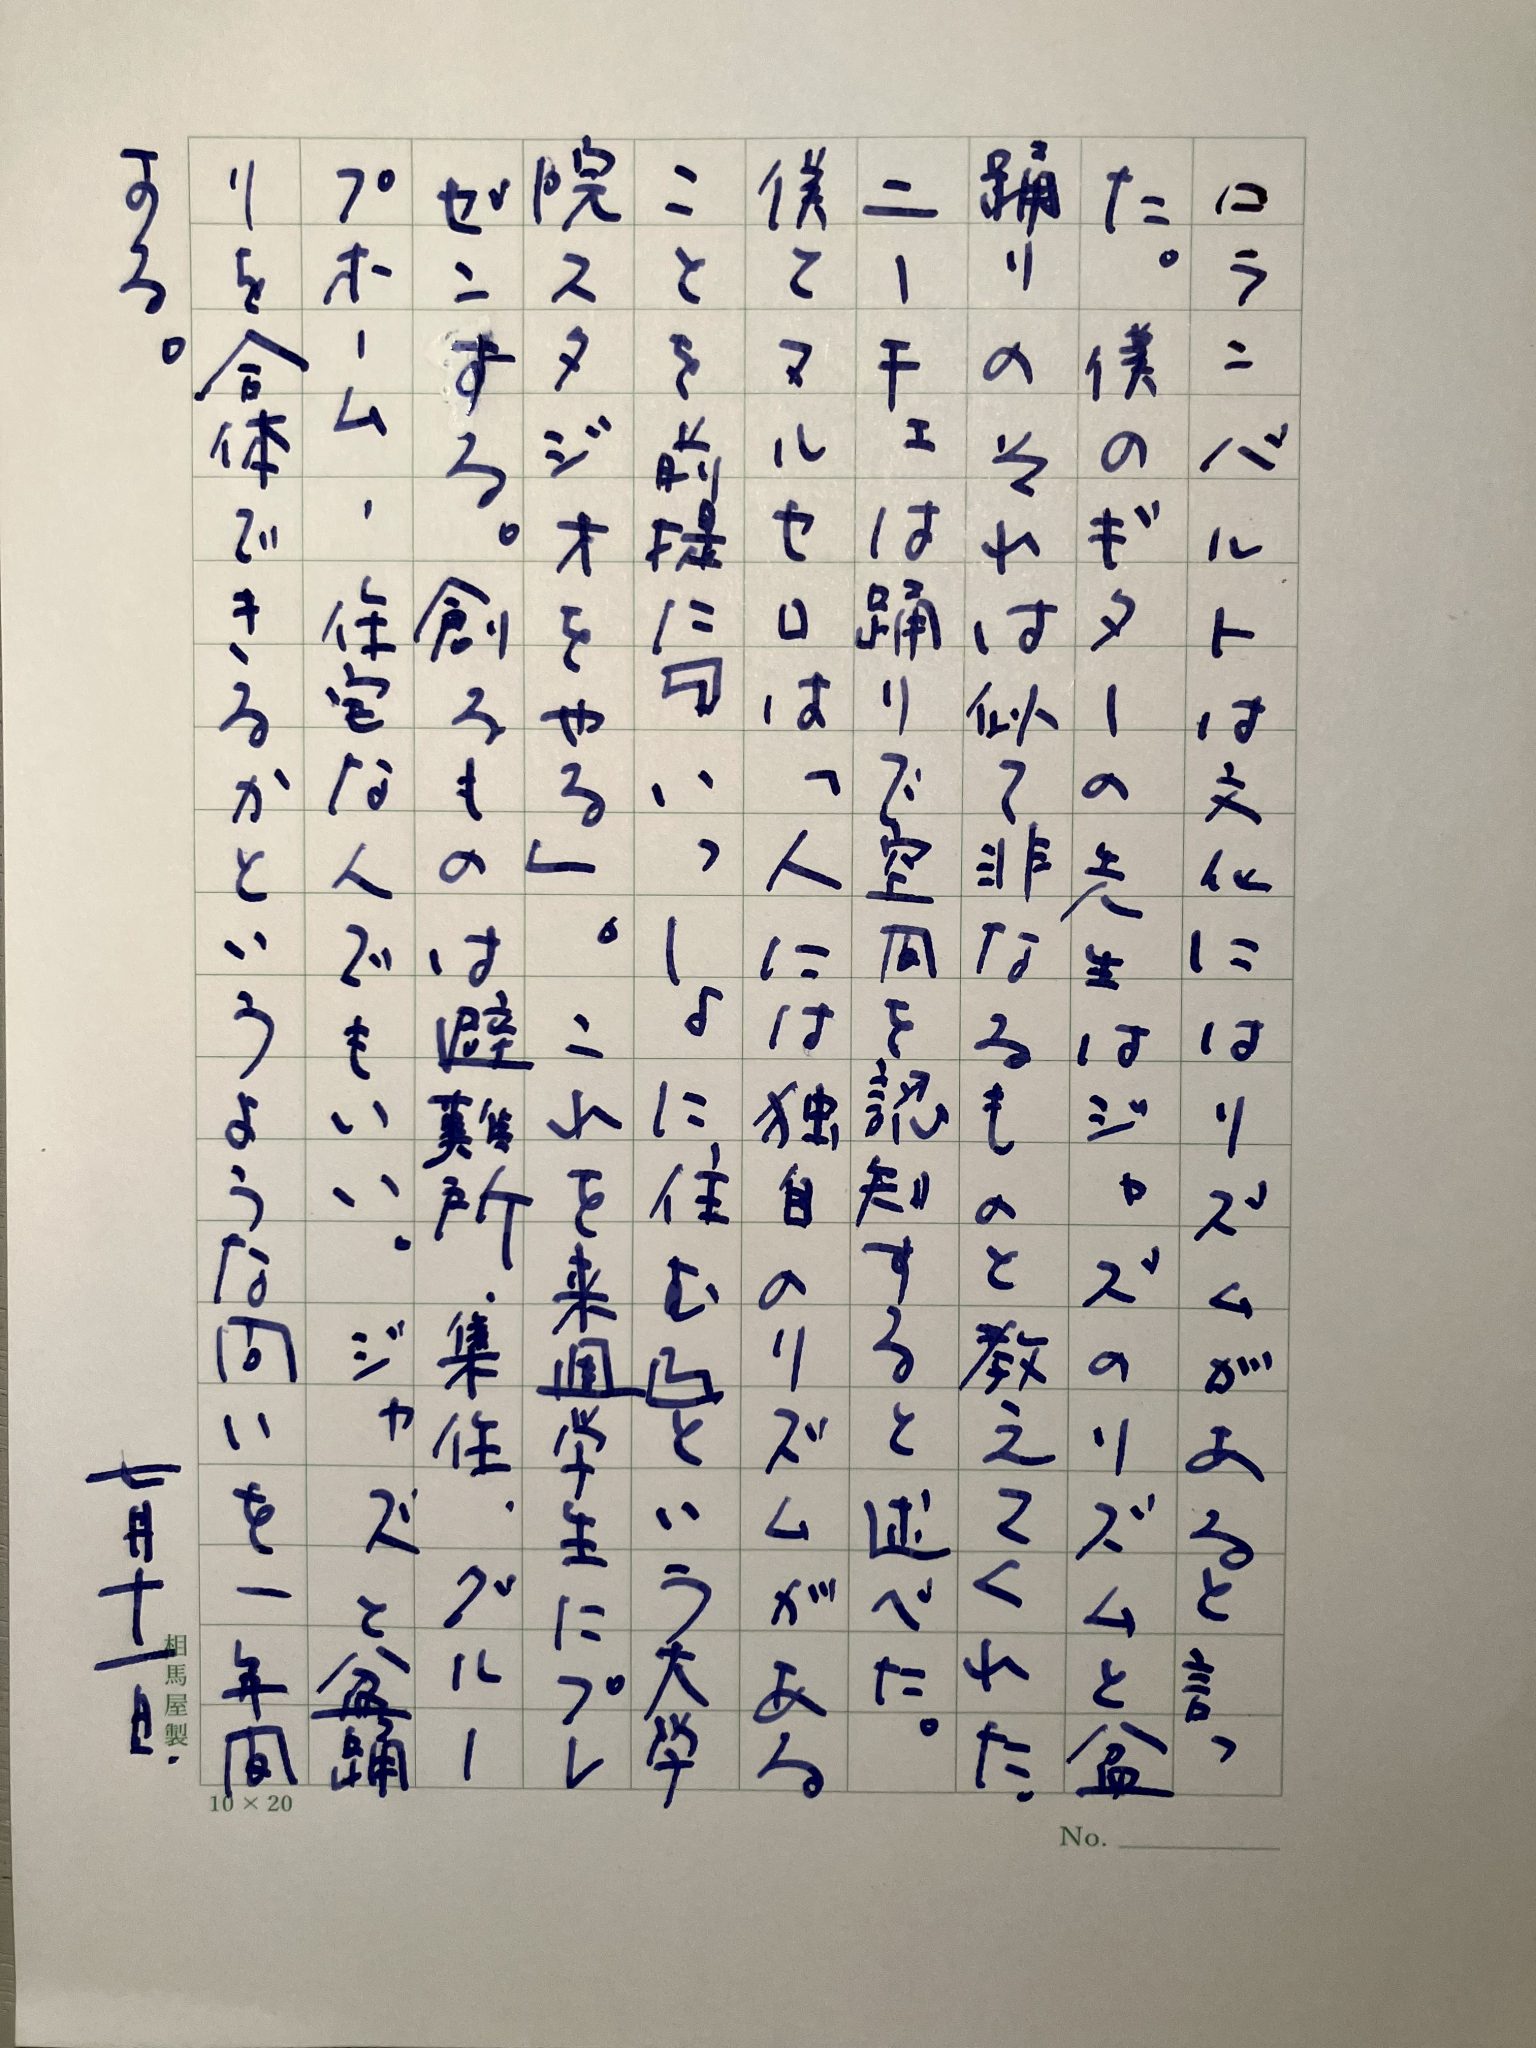 ロラニバルトは文化にはリズムがあると言っ
た。僕のギターの先生はジャズのリズムと盆
踊りのそれは似て非なるものと教えてくれた。
ニーチェは踊りで空間を認知すると述べた。
僕とマルセロは「人には独自のリズムがある
ことを前提に『いっしょに住む』という大学
院スタジオをやる」。これを来週学生にプレ
ゼンする。創るものは避難所、集住、グルー
プホーム、住宅なんでもいい。ジャズと盆踊
りを合体できるかというような問いを一年間
する。
七月十一日.
相馬屋製
10×20
No.